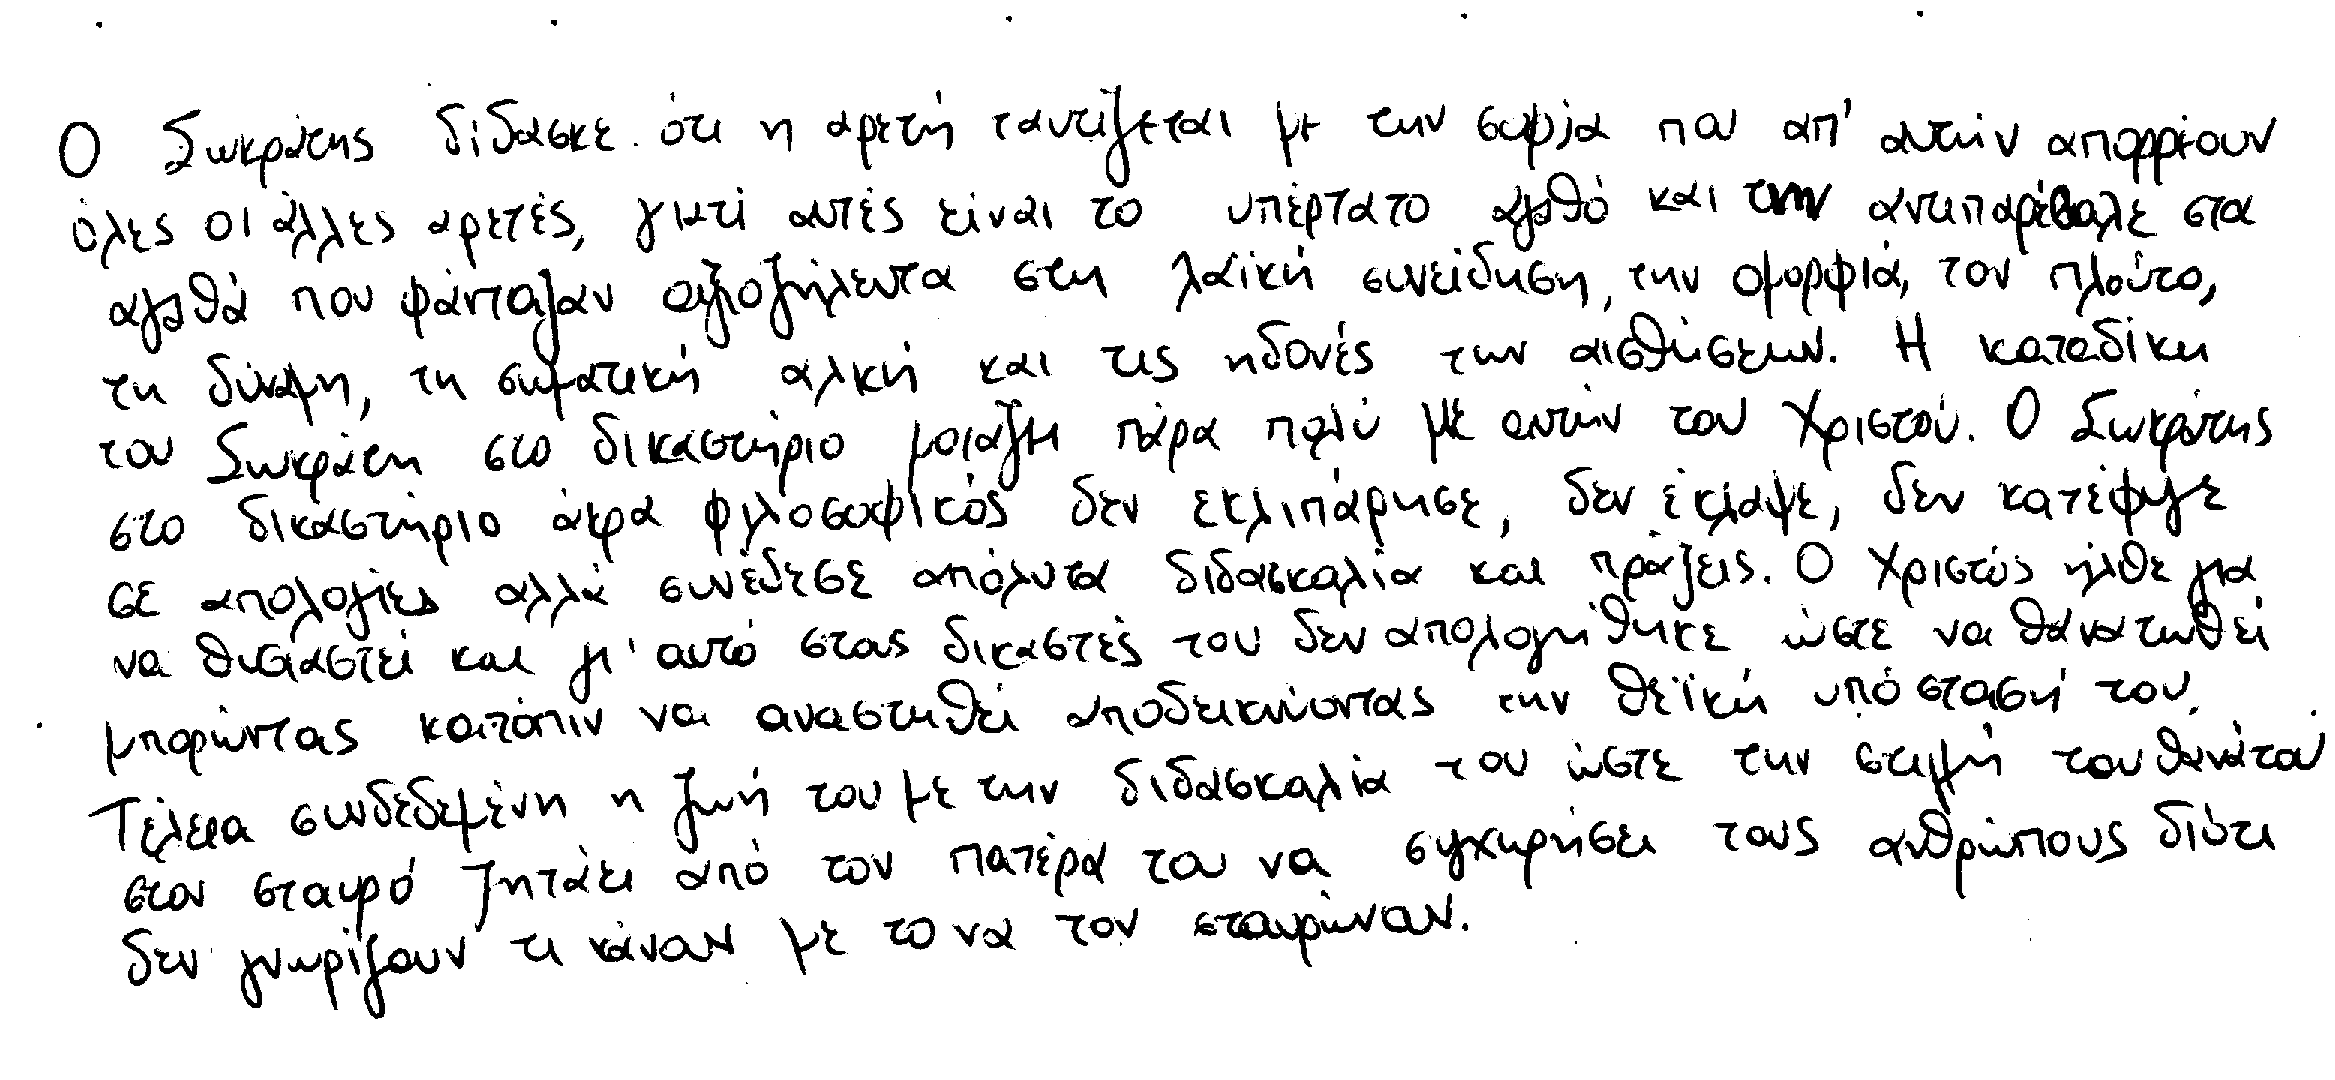 Ο Σωκράτης δίδασκε ότι η αρετή ταυτίζεται με την σοφία που απ' αυτήν απορρέουν
όλες οι άλλες αρετές, γιατί αυτές είναι το υπέρτατο αγαθό και την αντιπαρέβαλε στα
αγαθά που φάνταζαν αξιοζήλευτα στη λαϊκή συνείδηση, την ομορφιά, τον πλούτο,
τη δύναμη, τη σωματική αλκή και τις ηδονές των αισθήσεων. Η καταδίκη
του Σωκράτη στο δικαστήριο μοιάζει πάρα πολύ με αυτήν του Χριστού. Ο Σωκράτης
στο δικαστήριο άκρα φιλοσοφικός δεν εκλιπάρησε, δεν έκλαψε, δεν κατέφυγε
σε απολογίες αλλά συνέδεσε απόλυτα διδασκαλία και πράξεις. Ο Χριστός ήλθε για
να θυσιαστεί και γι' αυτό στους δικαστές του δεν απολογήθηκε ώστε να θανατωθεί
μπορώντας κατόπιν να αναστηθεί αποδεικνύοντας την θεϊκή υπόστασή του.
Τέλεια συνδεδεμένη η ζωή του με την διδασκαλία του ώστε την στιγμή του θανάτου
στον σταυρό ζητάει από τον πατέρα του να συγχωρήσει τους ανθρώπους διότι
δεν γνωρίζουν τι κάνουν με το να τον σταυρώνουν.